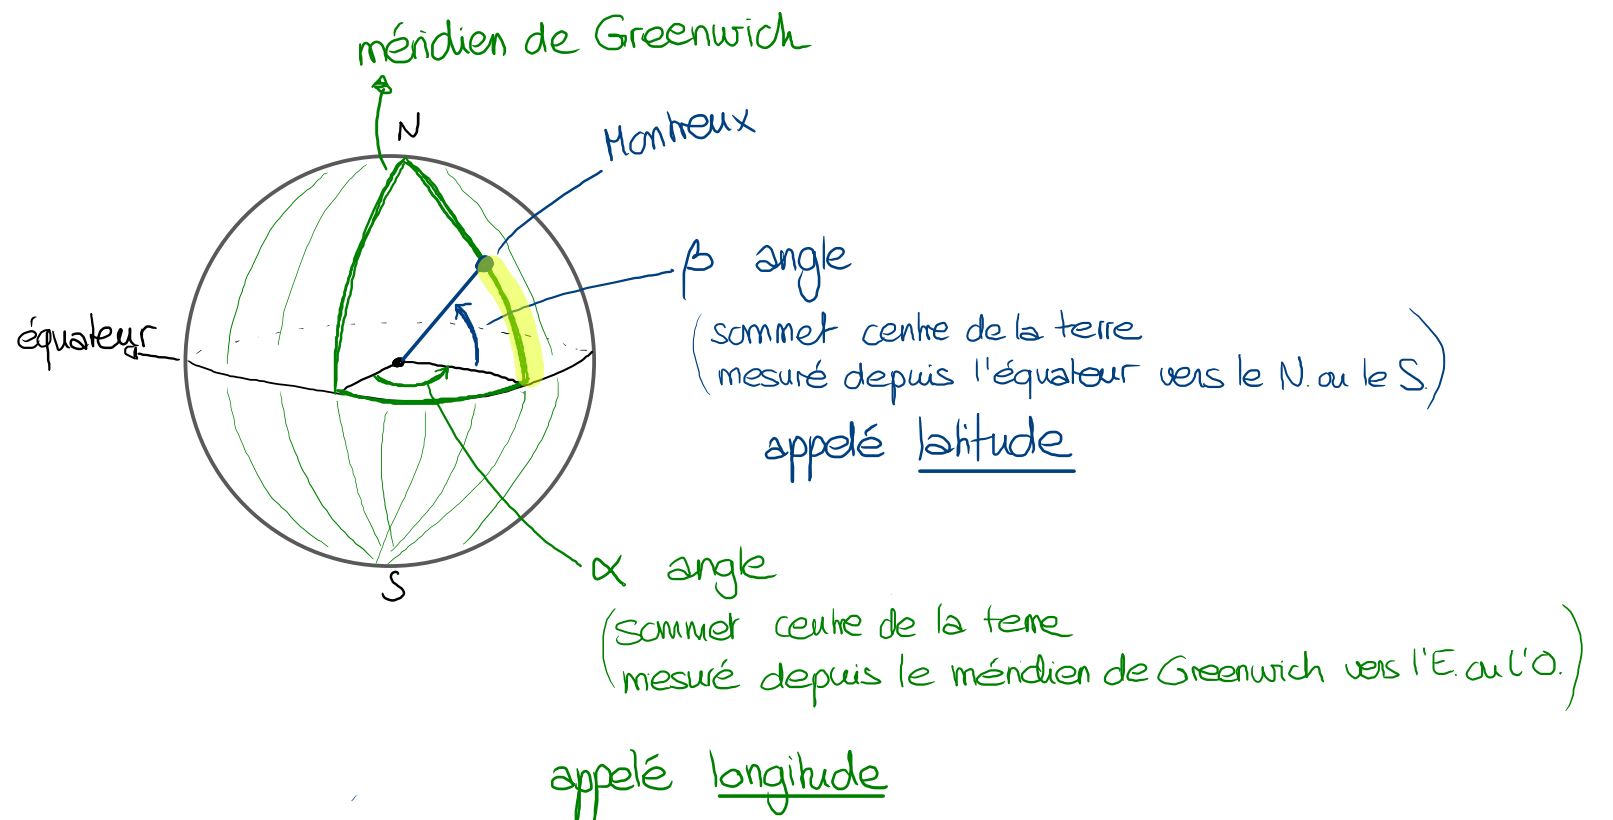 méridien de Greenwich
N
Montreux
β angle
(sommet centre de la terre
mesuré depuis l'équateur vers le N. ou le S.)
équateur
appelé latitude
α angle
S
(sommet centre de la terre
mesuré depuis le méridien de Greenwich vers l'E. ou l'O.)
appelé longitude